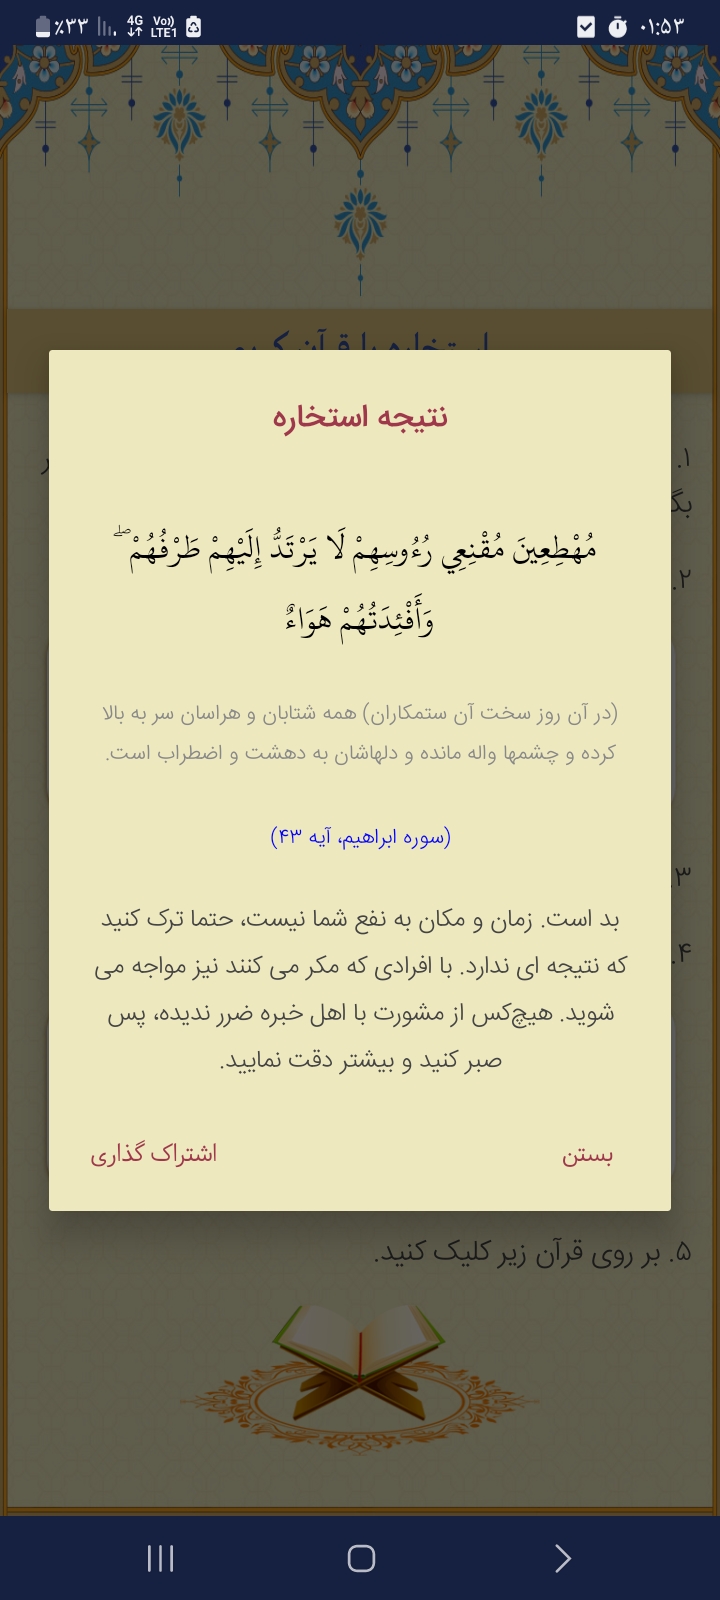 ٪۳۳ 4G Vo)) LTE1 ۰۱:۵۳
استخاره با قرآن کریم
۱.
۲.
نتیجه استخاره
مُهْطِعِينَ مُقْنِعِي رُءُوسِهِمْ لَا يَرْتَدُّ إِلَيْهِمْ طَرْفُهُمْ ۖ
وَأَفْئِدَتُهُمْ هَوَاءٌ
(در آن روز سخت آن ستمکاران) همه شتابان و هراسان سر به بالا
کرده و چشمها واله مانده و دلهاشان به دهشت و اضطراب است.
(سوره ابراهیم، آیه ۴۳)
۳.
بد است. زمان و مکان به نفع شما نیست، حتما ترک کنید
۴.
که نتیجه ای ندارد. با افرادی که مکر می کنند نیز مواجه می
شوید. هیچ‌کس از مشورت با اهل خبره ضرر ندیده، پس
صبر کنید و بیشتر دقت نمایید.
بستن
اشتراک گذاری
۵. بر روی قرآن زیر کلیک کنید.